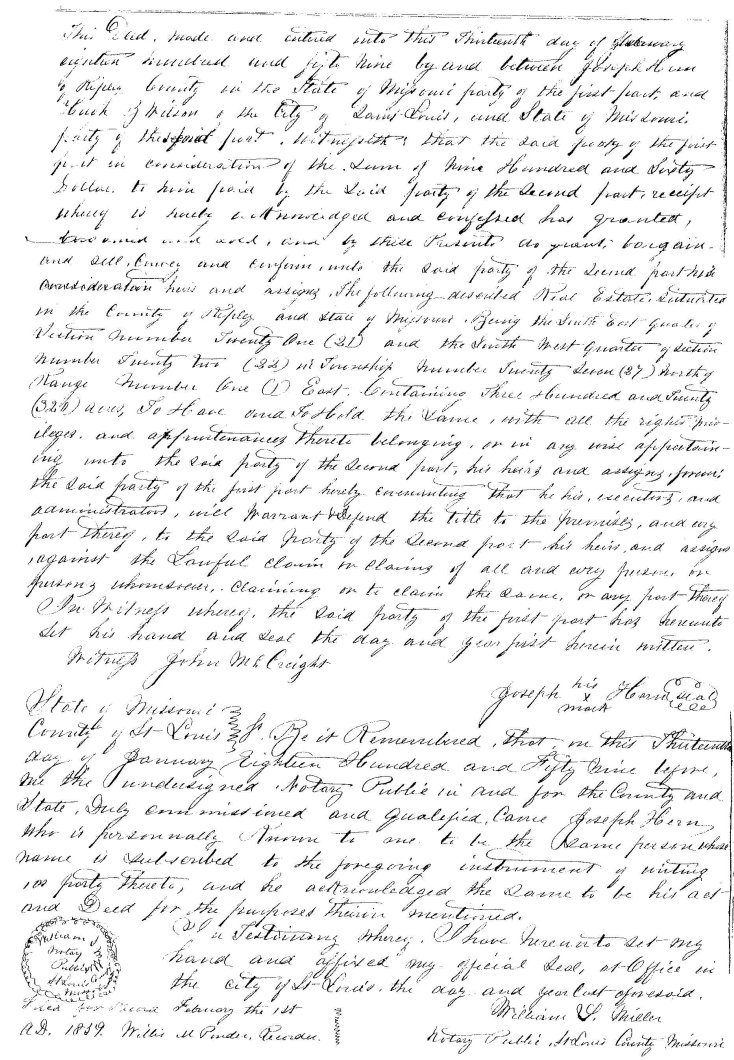 This Deed, made and entered into this Thirteenth day of January
eighteen hundred and fifty nine by and between Joseph Hern
of Ripley County in the State of Missouri party of the first part, and
Wilson of the City of Saint Louis, and State of Missouri
party of the second part, witnesseth; that the said party of the first
part in consideration of the sum of Nine Hundred and Sixty
Dollars to him paid by the said party of the Second part, receipt
whereof is hereby acknowledged and confessed has granted,
bargained and sold, and by these Presents do grant, bargain
and sell, Convey and confirm, unto the said party of the second part his
consideration heirs and assigns, The following described Real Estate situated
in the County of Ripley and State of Missouri. Being the South East quarter of
Section Number Twenty One (21) and the South West Quarter of section
number Twenty two (22) in Township Number Twenty Seven (27) North of
Range Number One (1) East. Containing Three Hundred and Twenty
(320) acres, To Have and To Hold the same, with all the rights priv-
ileges, and appurtenances thereto belonging, or in any wise appertain-
ing unto the said party of the second part, his heirs and assigns,
the said party of the first part hereby covenanting that he his, executors, and
administrators, will Warrant & defend the title to the premises, and evry
part thereof, to the said Party of the Second part his heirs, and assigns
against the Lawful claim or claims of all and evry person, or
persons whomsoever, claiming or to claim the same, or any part thereof
In Witness whereof, the said party of the first part has hereunto
set his hand and seal the day and year first herein written.
Witness John McCreight
Joseph his x mark Hern seal
State of Missouri
County of St Louis Be it Remembered, that on this Thirteenth
day of January Eighteen Hundred and Fifty Nine before,
me the undersigned, Notary Public in and for the County and
State, Duly commissioned and qualified, Came Joseph Hern
who is personnally Known to me to be the same person whose
name is subscribed to the foregoing instrument of writing
as party thereto, and he acknowledged the same to be his act
and Deed for the purposes therein mentioned.
In Testimony whereof, I have hereunto set my
hand and affixed my official seal, at Office in
the city of St Louis, the day and year last aforesaid.
William S.
Notary
Public
St Louis Co
William S. Miller
Notary Public, St Louis County Missouri
Filed for Record February the 1st
A.D. 1859. Willis M Ponder, Recorder.